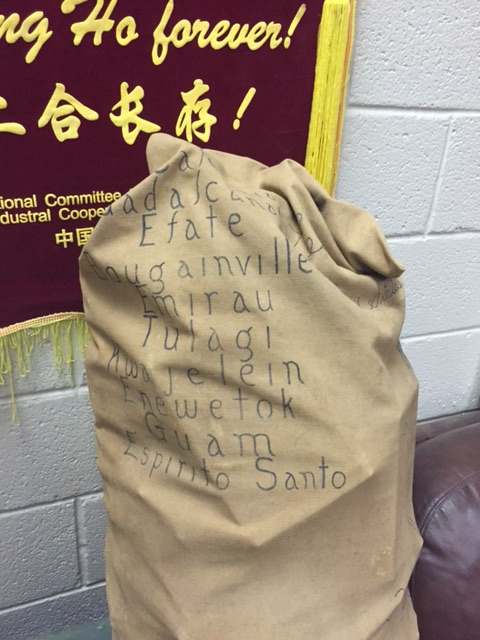 ng Ho forever!
工合长存!
tional Committee
ndustrial Cooper
中国
Cal
uadalcanal
Efate
Bougainville
Emirau
Tulagi
Kwajelein
Enewetok
Guam
Espirito Santo